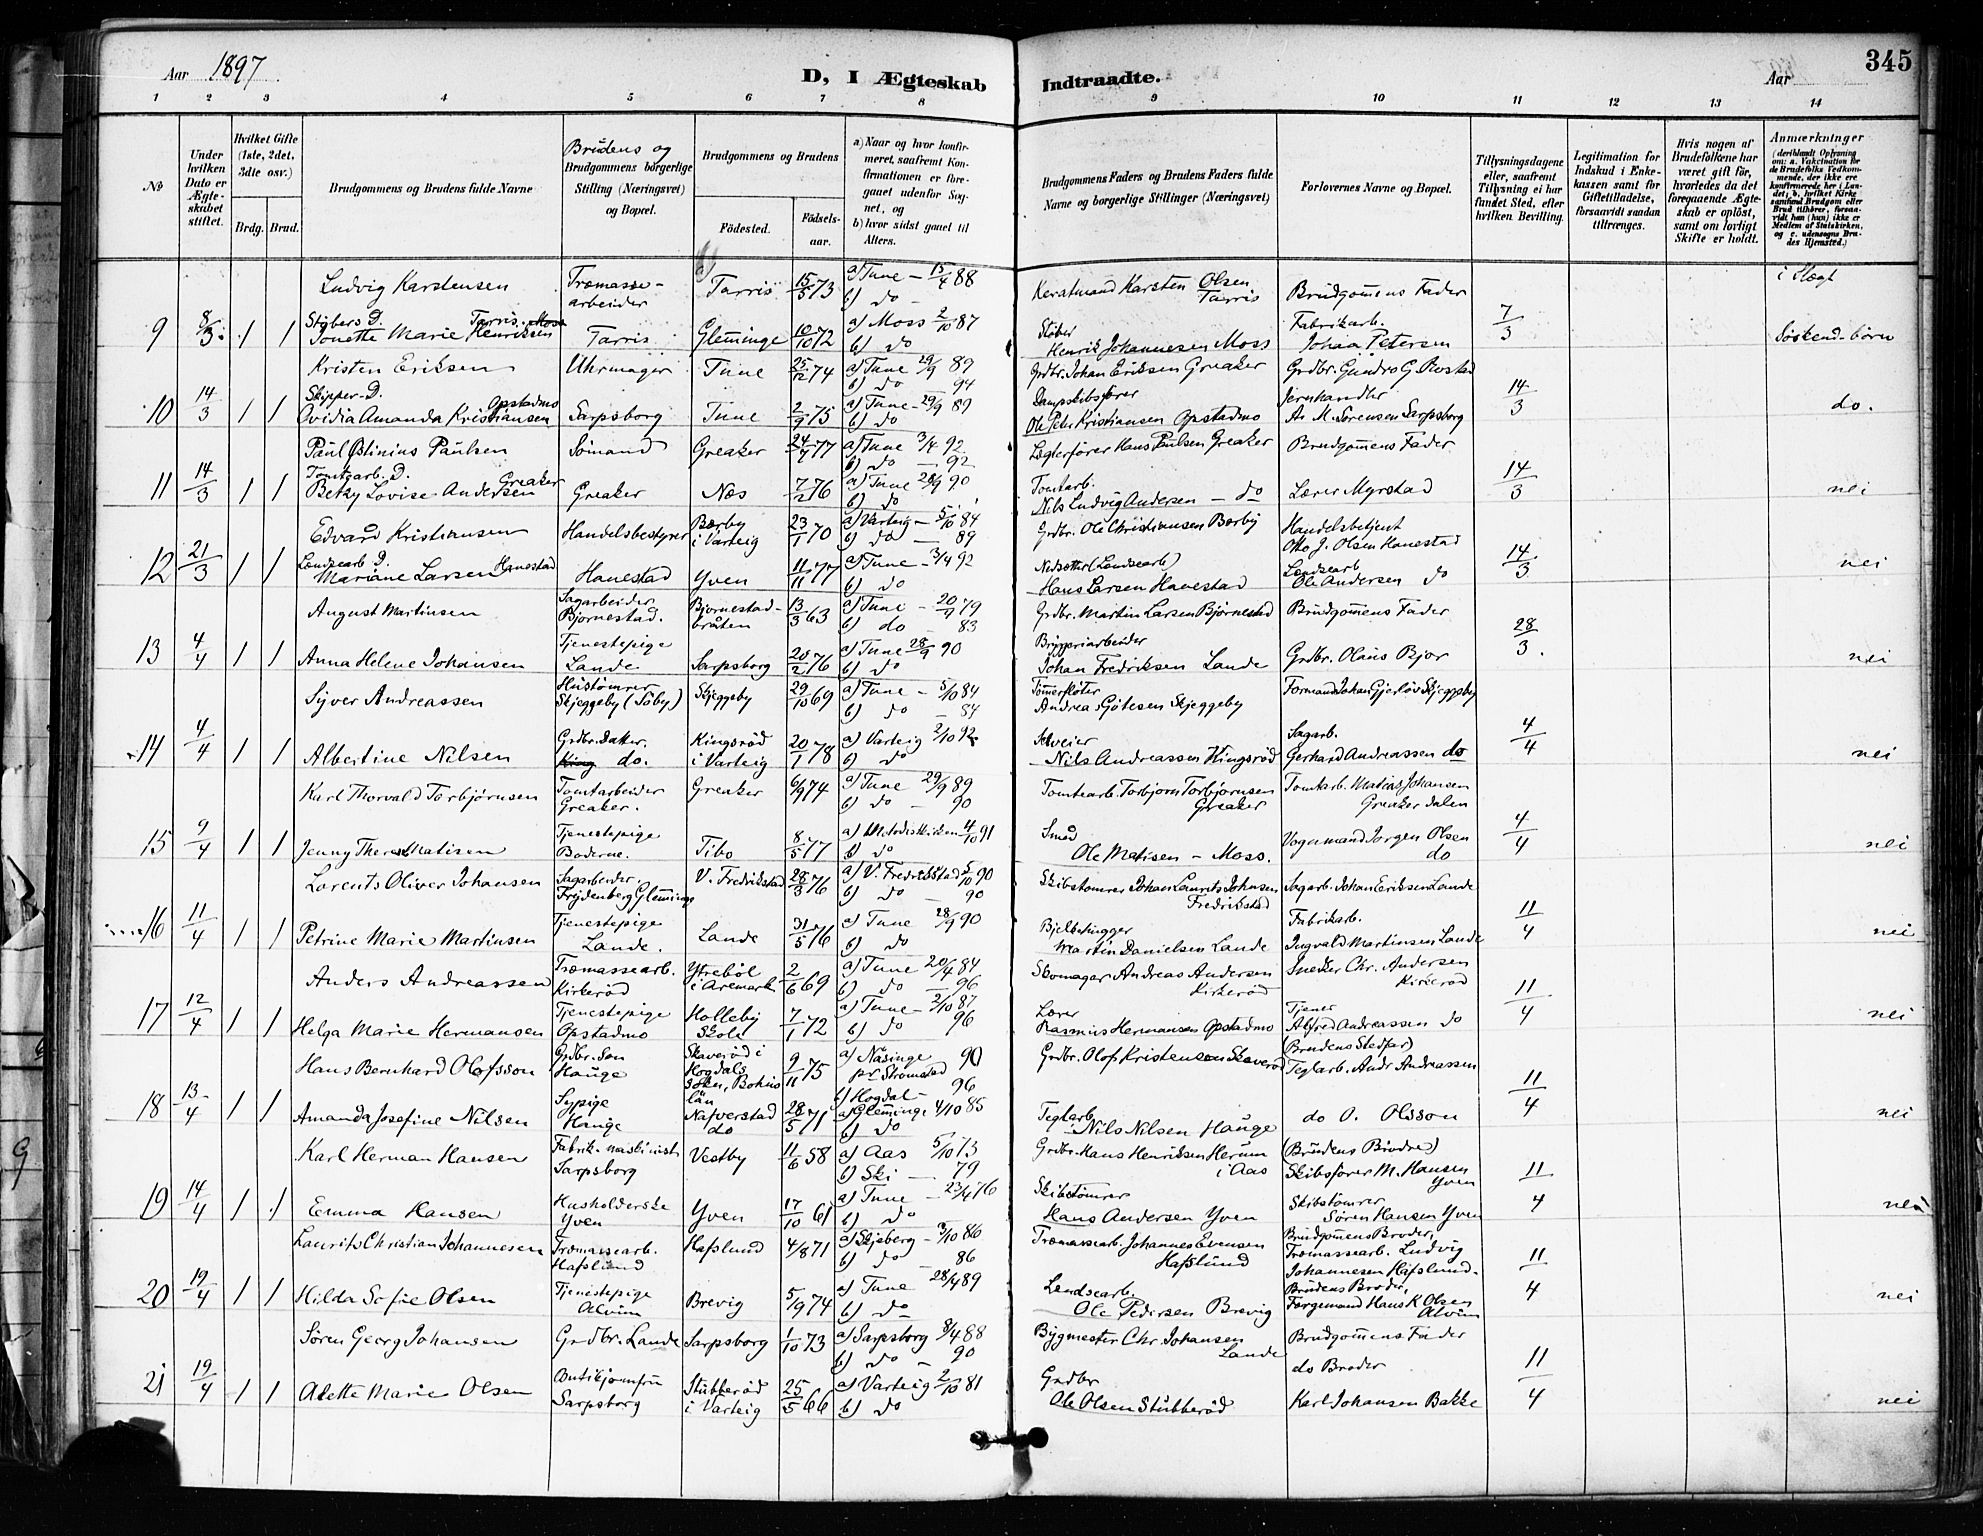 Aar 1897
D, I Ægteskab Indtraadte.
Aar
345
1 2 3 4 5 6 7 8 9 10 11 12 13 14
No
Under hvilken Dato er Ægteskabet stiftet.
Hvilket Gifte (1ste, 2det, 3dte osv.)
Brdg. Brud.
Brudgommens og Brudens fulde Navne
Brudens og
Brudgommens borgerlige Stilling (Næringsvei) og Bopæl.
Brudgommens og Brudens
Fødested.
Fødselsaar.
a) Naar og hvor konfirmeret, saafremt Konfirmationen er foregaaet udenfor Sognet, og
b) hvor sidst gaaet til Alters.
Brudgommens Faders og Brudens Faders fulde Navne og borgerlige Stillinger (Næringsvei)
Forlovernes Navne og Bopæl.
Tillysningsdagene eller, saafremt Tillysning ei har fundet Sted, efter hvilken Bevilling.
Legitimation for Indskud i Enkekassen samt for Giftetilladelse, forsaavidt saadan tiltrænges.
Hvis nogen af Brudefolkene har været gift før, hvorledes da det foregaaende Ægteskab er opløst, samt om lovligt Skifte er holdt.
Anmærkninger
Ludvig Karstensen Træmasse- Tarris 15/5 73 a) Tune - 15/4 88 Karsten Olsen Brudgommens Fader i Slegt
arbeider b) do - Tarris
Støbers D. Tarris. Moss Fabrikarb.
9 8/3 1 1 Jonette Marie Henriksen Tarris Glemminge 10/10 72 a) Moss 2/10 87 Støber 7/3 Søskend-børn
b) do Henrik Johannesen Moss Johan Petersen
Kristen Eriksen Uhrmager Tune 25/12 74 a) Tune 29/9 89 Grdbr. Johan Eriksen Greaker Grdbr. Gundro G. Rostad
b) do 94
Skipper-D. Opstadmo Dampskibsfører Jernhandler
10 14/3 1 1 Ovidia Amanda Kristiansen Sarpsborg Tune 2/9 75 a) Tune - 29/9 89 14/3 do.
b) do Ole Peter Kristiansen Opstadmo A. M. Sørensen Sarpsborg
Paul Østinius Paulsen Sømand Greaker 24/7 77 a) Tune 3/4 92 Hans Paulsen Greaker Brudgommens Fader
b) do - 92
Tomtearb. D. Greaker Tomtarb.
11 14/3 1 1 Betzy Lovise Andersen Greaker Næs 7/2 76 a) Tune 28/9 90 Lærer Myrstad 14/3 nei
b) do Nils Ludvig Andersen - do
Edvard Kristiansen Handelsbestyrer Børby i Varteig 23/1 70 a) Varteig - 5/10 84 Grdbr. Ole Christiansen Børby Handelsbetjent
b) do - 89 Otto J. Olsen Hanestad
Lændsearb D. Hanestad (Lændsearb) Lændsearb
12 21/3 1 1 Mariane Larsen Hanestad Yven 11/11 77 a) Tune - 3/4 92 14/3 nei
b) do Hans Larsen Hanestad Ole Andersen do
August Martinsen Sagarbeider Bjørnestad. Bjørnestad-bråten 13/3 63 a) Tune - 20/4 79 Grdbr. Martin Larsen Bjørnestad Brudgommens Fader
b) do - 83
13 4/4 1 1 Anna Helene Johansen Tjenestepige Lande Sarpsborg 28/2 76 a) Tune 28/9 90 Bryggeriarbeider 28/3. nei
b) do Johan Fredriksen Lande Grdbr. Olaus Bjor
Syver Andreassen Hustømrer Skjeggeby (Søby) Skjeggeby 29/10 69 a) Tune - 5/10 84 Tømmerfløter Formand Johan Gjerløv Skjeggeby
b) do - 84 Andreas Gøtesen Skjeggeby
14 4/4 1 1 Albertine Nilsen Grdbr. Datter. do. Kingsrød i Varteig 20/1 78 a) Varteig 2/10 92 Selveier Sagarb. 4/4 nei
b) do Nils Andreassen Kingsrød Gerhard Andreassen do
Karl Thorvald Torbjørnsen Tomtarbeider Greaker. Greaker 6/9 74 a) Tune 29/9 89 Tomtearb. Torbjørn Torbjørnsen Tomtarb. Matias Johansen
b) do - 90 Greaker Greakerdalen
15 9/4 1 1 Jenny Therese Matisen Tjenestepige Boderne. Tibo 8/5 77 a) Metodistkirken 4/10 91 Smed Vognmand Jørgen Olsen 4/4 nei
b) do Ole Matisen - Moss. do
Larents Oliver Johansen Sagarbeider. Frydenberg Glemminge V. Fredrikstad 28/3 76 a) V. Fredrikstad 5/10 90 Skibstømrer Johan Laurits Johnsen Sagarb. Johan Eriksen Lande
b) do - 90 Fredrikstad
16 11/4 1 1 Petrine Marie Martinsen Tjenestepige Lande. Lande 31/5 76 a) Tune 28/9 90 Bjelkehugger Fabrikarb. 11/4 nei
b) do Martin Danielsen Lande Ingvald Martinsen Lande
Anders Andreassen Træmassearb. Kirkerød Ytrebøl i Aremark 2/6 69 a) Tune 20/4 84 Skomager Andreas Andersen Snedker Chr. Andersen
b) do - 96 Kirkerød Kirkerød
17 12/4 1 1 Helga Marie Hermansen Tjenestepige Opstadmo Holleby Skole 7/1 72 a) Tune - 2/10 87 Lærer Tjener 11/4 nei
b) do 96 Rasmus Hermansen Opstadmo Alfred Andreassen do
Hans Bernhard Olofsson Grdbr. Søn Hauge Skaverød i Hogdals Soken, Bohus län 9/11 75 a) Näsinge pr Strømstad 90 Grdbr. Olof Kristensson Skaverød (Brudens Stedfar)
b) Hogdal - 96 Teglarb. Andr Andreassen
18 13/4 1 1 Amanda Josefine Nilsen Sypige Hauge Nafverstad do 28/5 71 a) Glemminge 4/10 85 Teglarb. do O. Olsson 11/4 nei
b) do Nils Nilsen Hauge
Karl Herman Hansen Fabrik-maskinist Sarpsborg Vestby 11/6 58 a) Aas 5/10 73 Grdbr. Hans Henriksen Herum (Brudens Brødre)
b) Ski - 79 i Aas Skibsfører M. Hansen Yven
19 14/4 1 1 Emma Hansen Husholderske Yven Yven 17/10 61 a) Tune - 23/4 76 Skibstømrer Skibstømrer 11/4 nei
b) do Hans Andersen Yven Søren Hansen Yven
Laurits Christian Johannesen Træmassearb. Hafslund Hafslund 4/8 71 a) Skjeberg - 3/10 86 Træmassearb. Johannes Evensen Brudgommens Broder,
b) do 86 Hafslund Træmassearb. Ludvig Johannesen Hafslund.
20 19/4 1 1 Hilda Sofie Olsen Tjenestepige Alvim Brevig 5/9 74 a) Tune 28/9 89 Lændsearb. Brudens Broder, 11/4 nei
b) do Ole Pedersen Brevig Færgemand Hans K Olsen Alvim
Søren Georg Johansen Grdbr. Lande Sarpsborg 1/10 73 a) Sarpsborg 8/4 88 Bygmester Chr. Johansen Brudgommens Fader
b) do - 90 Lande do Broder
21 19/4 1 1 Alette Marie Olsen Butikjomfru Sarpsborg Stubberød i Varteig 25/5 66 a) Varteig 2/10 81 Grdbr 11/4 nei
b) do Ole Olsen Stubberød Karl Johansen Bakke